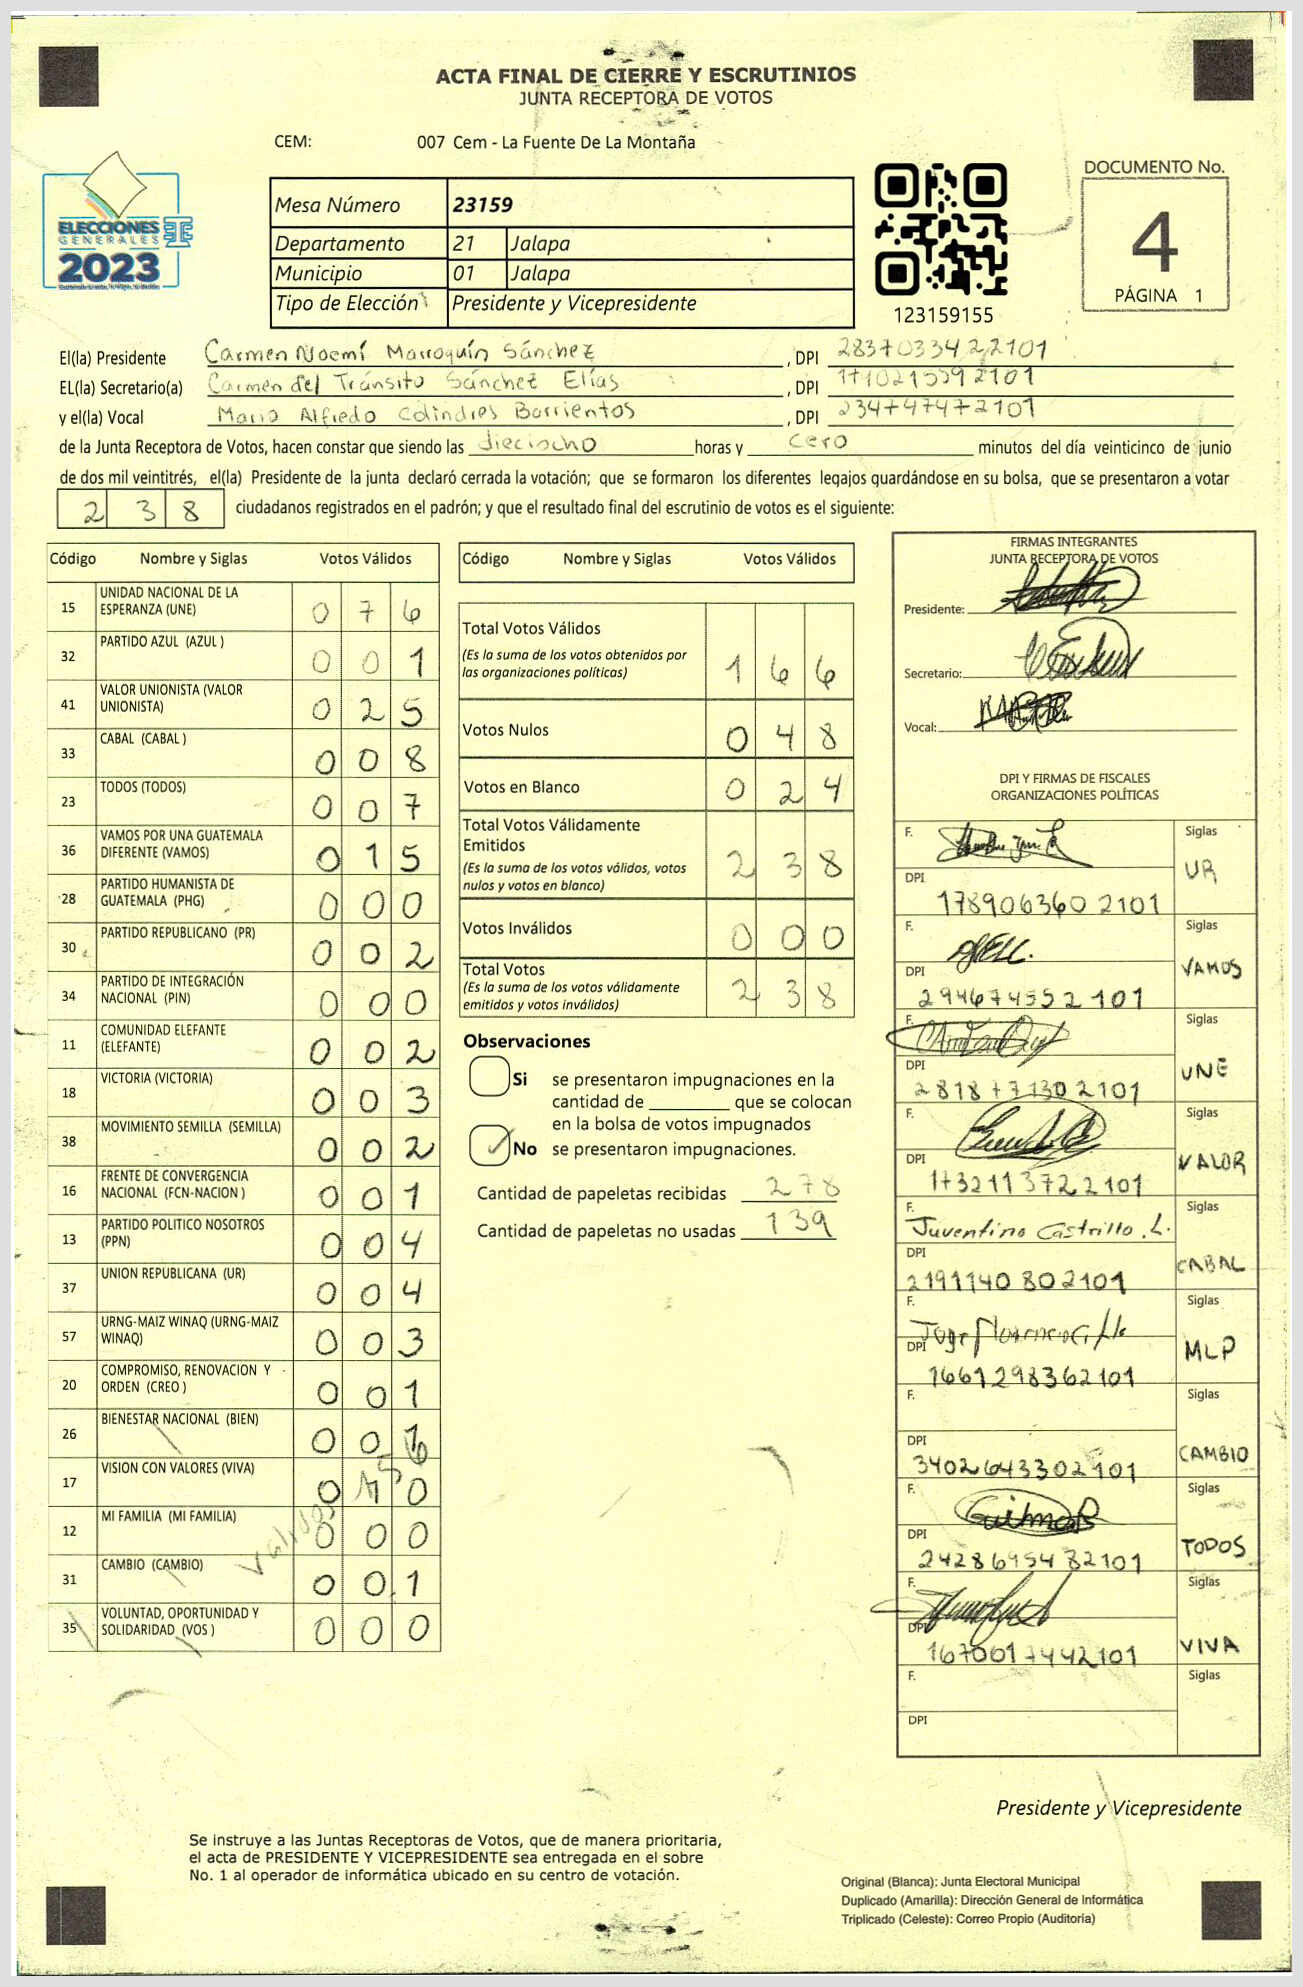 ACTA FINAL DE CIERRE Y ESCRUTINIOS
JUNTA RECEPTORA DE VOTOS
CEM: 007 Cem - La Fuente De La Montaña
ELECCIONES
GENERALES
2023
Mesa Número 23159
Departamento 21 Jalapa
Municipio 01 Jalapa
Tipo de Elección Presidente y Vicepresidente
123159155
DOCUMENTO No.
4
PÁGINA 1
El(la) Presidente Carmen Noemí Marroquín Sánchez, DPI 2837033422101
EL(la) Secretario(a) Carmen del Tránsito Sánchez Elías, DPI
y el(la) Vocal Mario Alfredo Colindres Barrientos, DPI 2347474772101
de la Junta Receptora de Votos, hacen constar que siendo las dieciocho horas y cero minutos del día veinticinco de junio
de dos mil veintitrés, el(la) Presidente de la junta declaró cerrada la votación; que se formaron los diferentes legajos guardándose en su bolsa, que se presentaron a votar
238 ciudadanos registrados en el padrón; y que el resultado final del escrutinio de votos es el siguiente:
Código Nombre y Siglas Votos Válidos
15 UNIDAD NACIONAL DE LA ESPERANZA (UNE) 076
32 PARTIDO AZUL (AZUL ) 001
41 VALOR UNIONISTA (VALOR UNIONISTA) 025
33 CABAL (CABAL ) 008
23 TODOS (TODOS) 007
36 VAMOS POR UNA GUATEMALA DIFERENTE (VAMOS) 015
28 PARTIDO HUMANISTA DE GUATEMALA (PHG) 000
30 PARTIDO REPUBLICANO (PR) 002
34 PARTIDO DE INTEGRACIÓN NACIONAL (PIN) 000
11 COMUNIDAD ELEFANTE (ELEFANTE) 002
18 VICTORIA (VICTORIA) 003
38 MOVIMIENTO SEMILLA (SEMILLA) 002
16 FRENTE DE CONVERGENCIA NACIONAL (FCN-NACION ) 001
13 PARTIDO POLITICO NOSOTROS (PPN) 004
37 UNION REPUBLICANA (UR) 004
57 URNG-MAIZ WINAQ (URNG-MAIZ WINAQ) 003
20 COMPROMISO, RENOVACION Y ORDEN (CREO ) 001
26 BIENESTAR NACIONAL (BIEN) 00
17 VISION CON VALORES (VIVA) 0 0
12 MI FAMILIA (MI FAMILIA) 000
31 CAMBIO (CAMBIO) 001
35 VOLUNTAD, OPORTUNIDAD Y SOLIDARIDAD (VOS ) 000
Código Nombre y Siglas Votos Válidos
Total Votos Válidos 166
(Es la suma de los votos obtenidos por
las organizaciones políticas)
Votos Nulos 048
Votos en Blanco 024
Total Votos Válidamente
Emitidos 238
(Es la suma de los votos válidos, votos
nulos y votos en blanco)
Votos Inválidos 000
Total Votos 238
(Es la suma de los votos válidamente
emitidos y votos inválidos)
Observaciones
Si se presentaron impugnaciones en la
cantidad de ________ que se colocan
en la bolsa de votos impugnados
No se presentaron impugnaciones.
Cantidad de papeletas recibidas 278
Cantidad de papeletas no usadas 139
FIRMAS INTEGRANTES
JUNTA RECEPTORA DE VOTOS
Presidente:
Secretario:
Vocal:
DPI Y FIRMAS DE FISCALES
ORGANIZACIONES POLÍTICAS
F. Siglas
DPI 1789063602101 UR
F. Siglas
DPI 2946745522101 VAMOS
F. Siglas
DPI 2818771302101 UNE
F. Siglas
DPI 1732113722101 VALOR
F. Juventino Castrillo. L. Siglas
DPI 2191140802101 CABAL
F. Siglas
DPI 1661298362101 MLP
F. Siglas
DPI 3402643302101 CAMBIO
F. Siglas
DPI 2428695482101 TODOS
F. Siglas
DPI 1670617442101 VIVA
F. Siglas
DPI
Presidente y Vicepresidente
Se instruye a las Juntas Receptoras de Votos, que de manera prioritaria,
el acta de PRESIDENTE Y VICEPRESIDENTE sea entregada en el sobre
No. 1 al operador de informática ubicado en su centro de votación.
Original (Blanca): Junta Electoral Municipal
Duplicado (Amarilla): Dirección General de Informática
Triplicado (Celeste): Correo Propio (Auditoría)